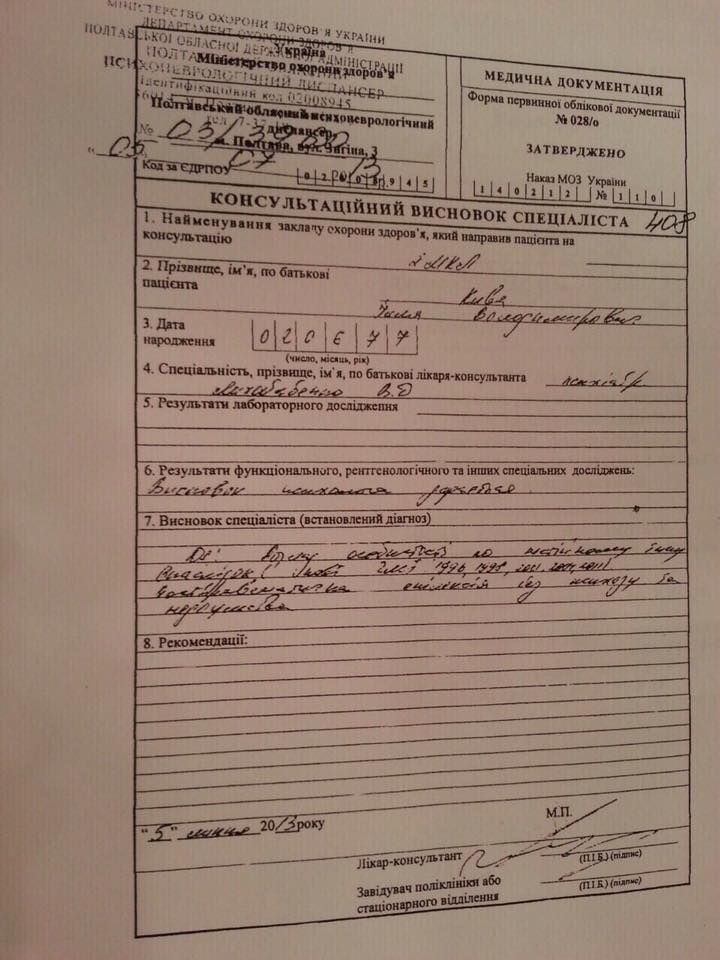 МІНІСТЕРСТВО ОХОРОНИ ЗДОРОВ'Я УКРАЇНИ
ДЕПАРТАМЕНТ ОХОРОНИ ЗДОРОВ'Я
ПОЛТАВСЬКОЇ ОБЛАСНОЇ ДЕРЖАВНОЇ АДМІНІСТРАЦІЇ
ПСИХОНЕВРОЛОГІЧНИЙ ДИСПАНСЕР
Ідентифікаційний код 02008945
Україна
Міністерство охорони здоров'я
Полтавський обласний психоневрологічний
диспансер
м. Полтава, вул. 3
№ 03/
"05" 07 2013
Код за ЄДРПОУ 02008945
МЕДИЧНА ДОКУМЕНТАЦІЯ
Форма первинної облікової документації
№ 028/о
ЗАТВЕРДЖЕНО
Наказ МОЗ України
140212 № 110
КОНСУЛЬТАЦІЙНИЙ ВИСНОВОК СПЕЦІАЛІСТА 408
1. Найменування закладу охорони здоров'я, який направив пацієнта на
консультацію МКЛ
2. Прізвище, ім'я, по батькові
пацієнта Кива
Ілля Володимирович
3. Дата
народження 020677
(число, місяць, рік)
4. Спеціальність, прізвище, ім'я, по батькові лікаря-консультанта психіатр
В.О
5. Результати лабораторного дослідження
6. Результати функціонального, рентгенологічного та інших спеціальних досліджень:
Висновок психолога
7. Висновок спеціаліста (встановлений діагноз)
особистості по типу
1996, 1998, 2001
епілепсія без психозу та
недоумства
8. Рекомендації:
"5" липня 2013 року
М.П.
Лікар-консультант
(П.І.Б.) (підпис)
Завідувач поліклініки або
стаціонарного відділення
(П.І.Б.) (підпис)